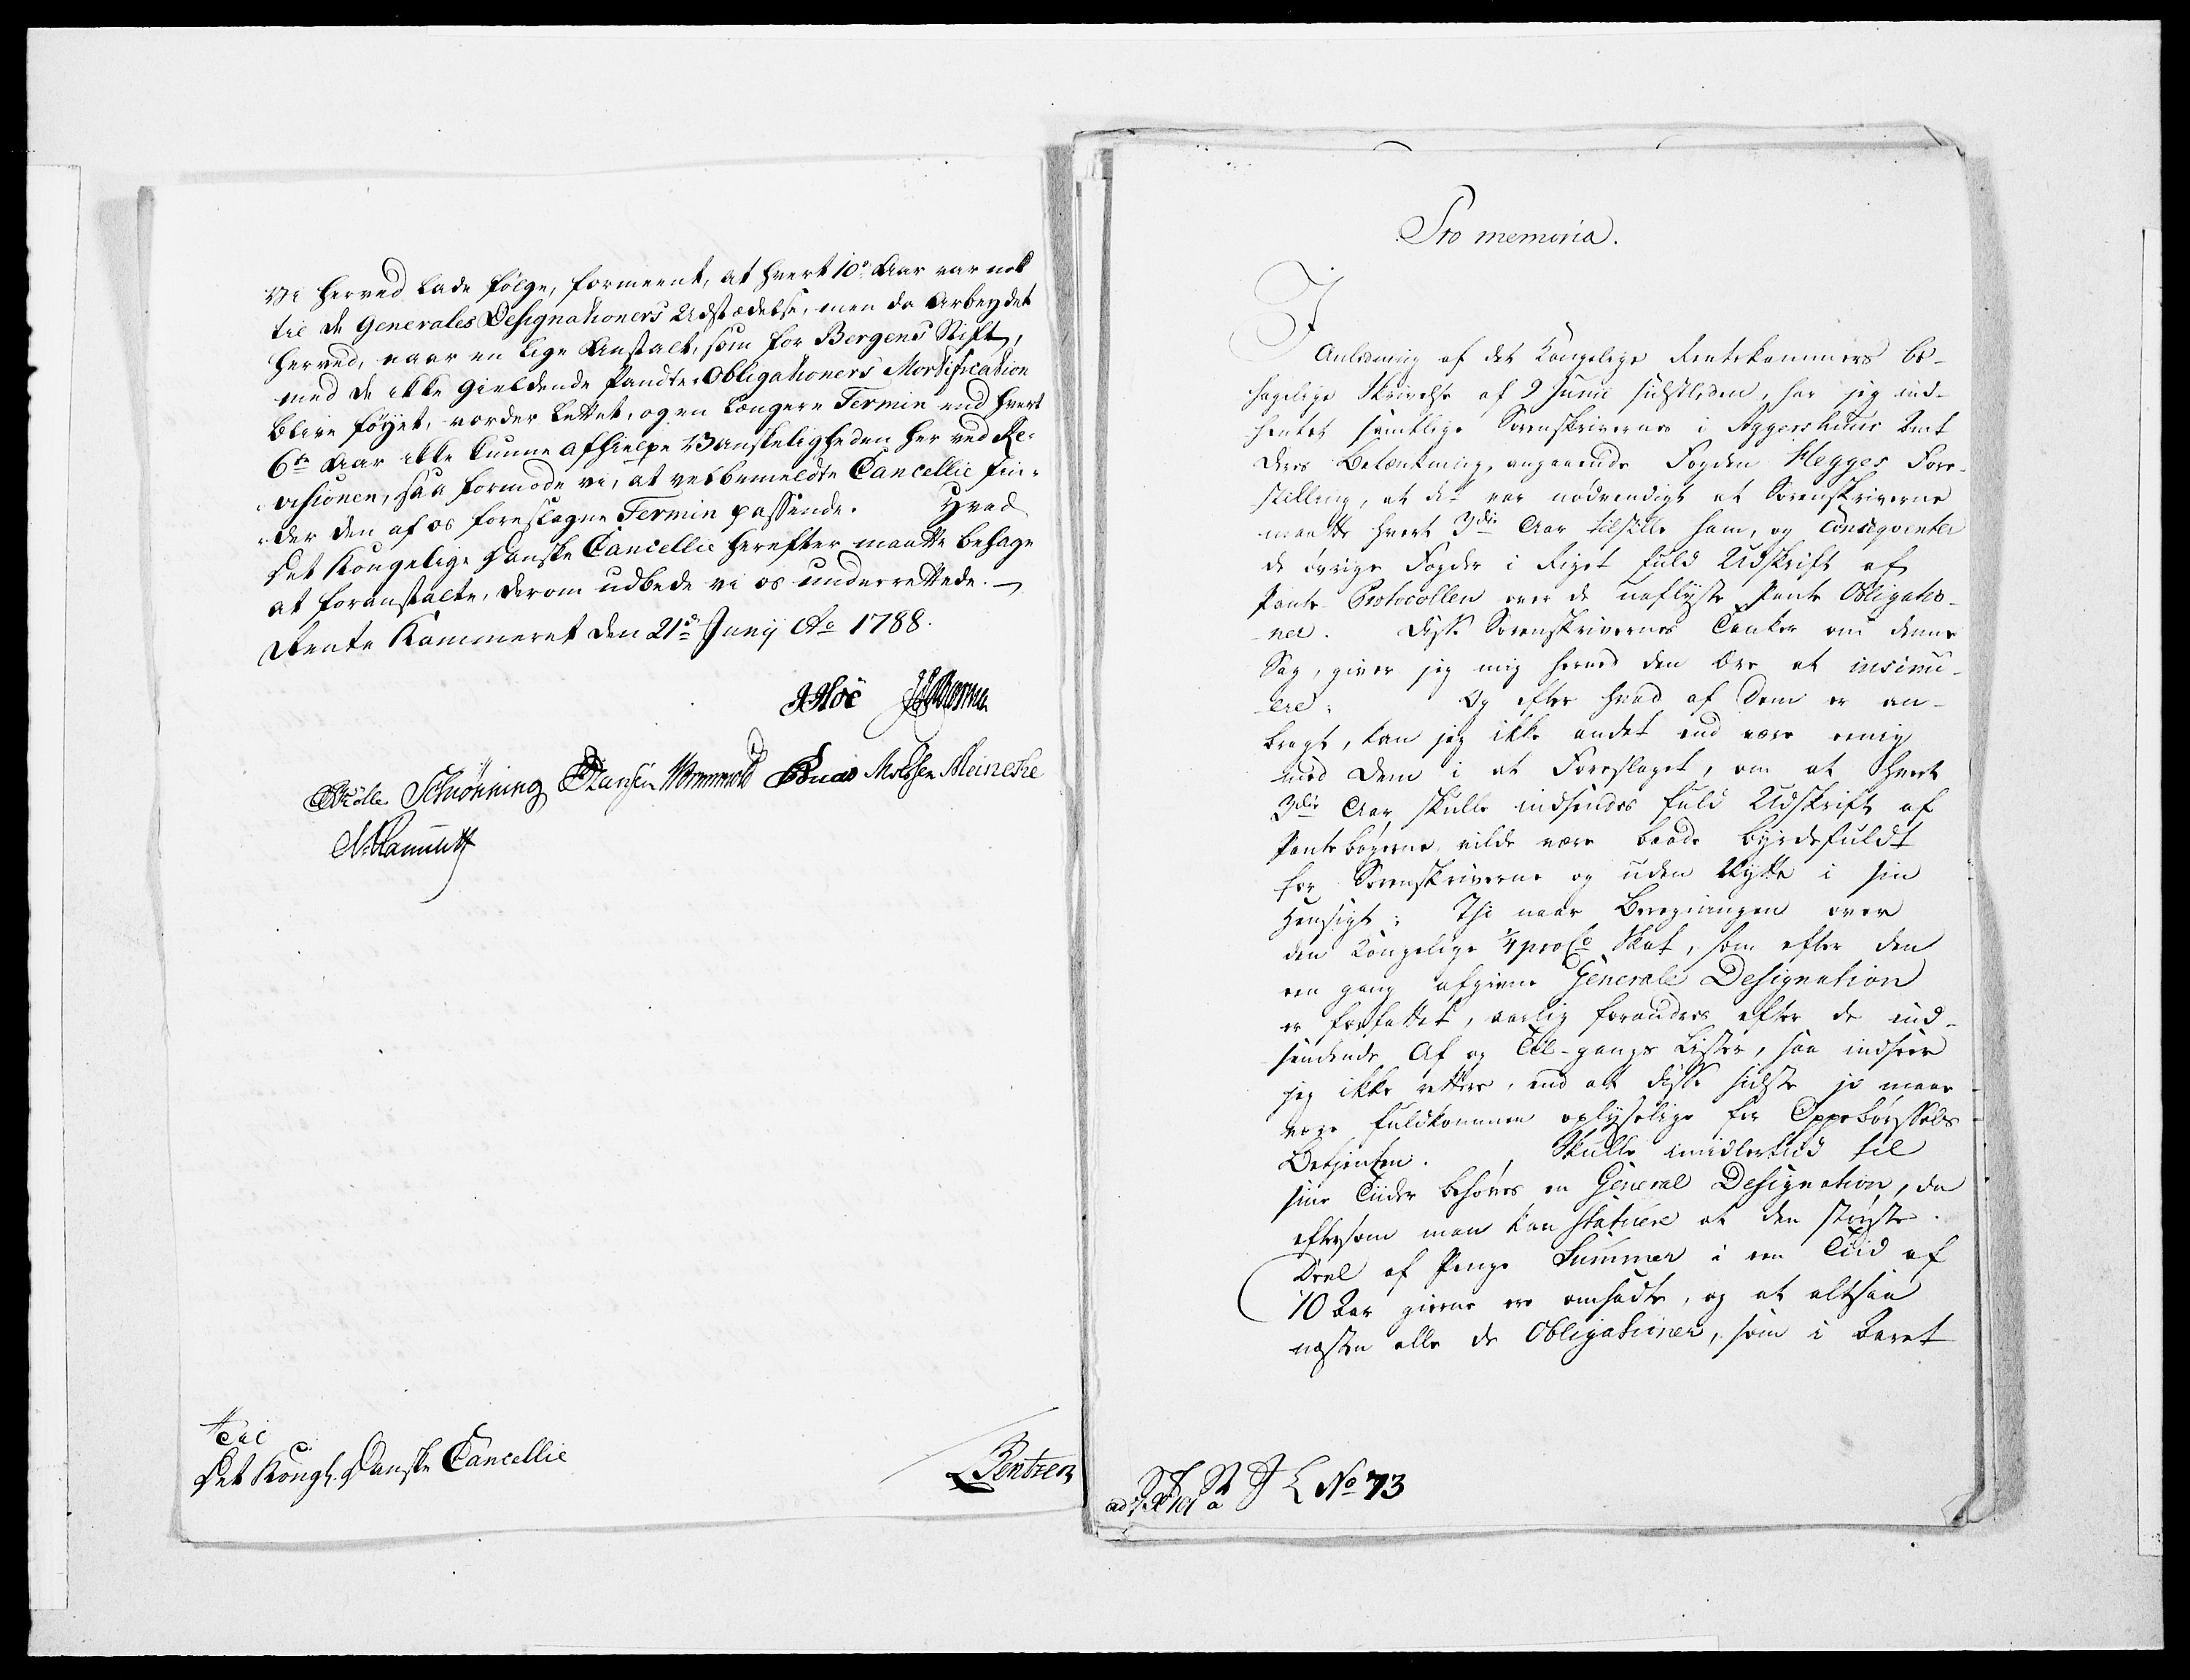 vi herved lade følge, formeent, at hvert 10de Aar var nok
til de Generales Designationers Udstædelse, men da Arbeydet
herved, naar en lige Anstalt, som for Bergens Stift,
med de ikke gieldende Pandte Obligationers Mortification
blive føyet, vorder lettet, og en længere Termin end hvert
6te Aar ikke kunne afhielpe Vanskeligheden her ved Re-
visionen, saa formode vi, at velbemeldte Cancellie fin-
der den af os foreslagne Termin passende. Hvad
Det Kongelige Danske Cancellie herefter maatte behage
at foranstalte, derom udbede vi os underrettede.
Rente Kammeret den 21de Junij Ao 1788.
Schiønning Hansen Wormskiold Knud Meinche
Til
Det Kongl. Danske Cancellie
Bentzen
Pro memoria.
I
Anledning af det Kongelige Rentekammers be-
hagelige Skrivelse af 9 Junii sidstleden, har jeg ind-
hentet samtlige Sorenskrivernes i Aggershuus Amt
deres Betænkning, angaaende Fogden Hegges Fore-
stilling, at det var nødvendigt at Sorenskriverne
maatte hvert 3die Aar tilstille ham, og consequenter
de øvrige Fogder i Riget fuld Udskrift af
Pante-Protocollen over de uaflyste Pante Obligatio-
ner. Disse Sorenskrivernes Tanker om denne
Sag, giver jeg mig herved den Ære at insinu-
ere: Og efter hvad af Dem er an-
bragt, kan jeg ikke andet end være eenig
med Dem i at Forslaget, om at hvert
3die Aar skulle indsendes fuld Udskrift af
Pantebøgerne vilde være baade byrdefuldt
for Sorenskriverne og uden Nytte i sin
Hensigt: Thi naar Beregningen over
den Kongelige 1/4 pro Co Skat, som efter den
een gang afgivne Generale Designation
er forfattet, aarlig forandres efter de ind-
sendende Af og Til-gangs Lister, saa indseer
jeg ikke rettere, end at disse sidste jo maae
være fuldkommen oplyselige for Oppebørsels
Betjenten. Skulle imidlertid til
sine Tiider behøves en General Designation, da
eftersom man kan statuere at den største
Deel af Penge Summer i een Tiid af
10 Aar gierne ere omsadte, og at altsaa
næsten alle de Obligationer, som i Aaret
No 73